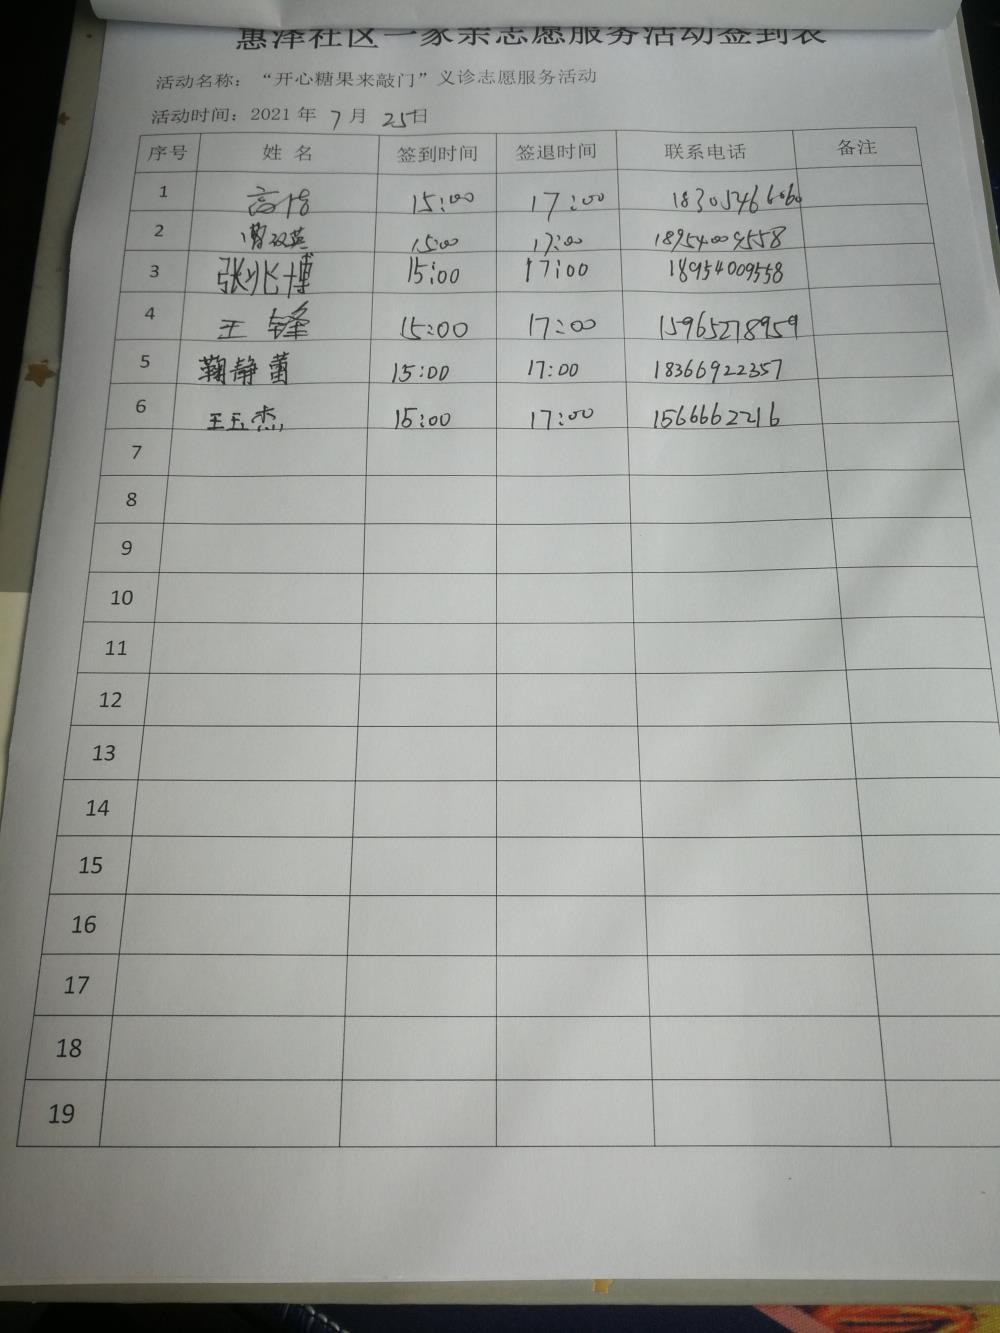 惠泽社区一家亲志愿服务活动签到表
活动名称：“开心糖果来敲门”义诊志愿服务活动
活动时间：2021 年 7 月 25日
序号 姓 名 签到时间 签退时间 联系电话 备注
1 高 15:00 17:00 18305466060
2 曹双英 15:00 17:00 18954009558
3 张兆博 15:00 17:00 18954009558
4 王锋 15:00 17:00 15965278959
5 鞠静蕾 15:00 17:00 18366922357
6 王玉杰 15:00 17:00 1566662216
7
8
9
10
11
12
13
14
15
16
17
18
19